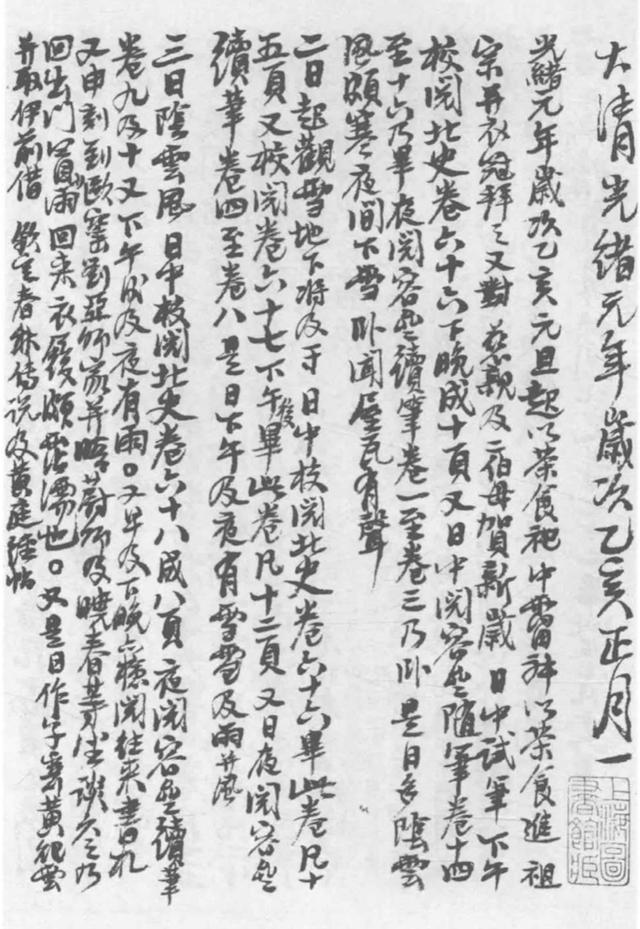 大清光緒元年歲次乙亥正月一
光緒元年歲次乙亥元旦起以茶食祀中霤神以茶食進 祖
宗并衣冠拜之又對 慈親及二伯母賀新歲 日中試筆下午
校閱北史卷六十六下晚成十頁又日中閱容齋隨筆卷十四
至十六乃畢夜閱容齋續筆卷一至卷三乃卧是日多陰雲
風頗寒夜間下雪卧聞屋瓦有聲
二日起觀雪地下將及寸 日中校閱北史卷六十六畢此卷凡十
五頁又校閱卷六十七下午後畢此卷凡十二頁 又日夜閱容齋
續筆卷四至卷八 是日下午及夜有雪雹及雨并風
三日陰雲風 日中校閱北史卷六十八成八頁 夜閱容齋續筆
卷九及十 又下午以及夜有雨 又早及下晚檢閱往來書札
又申刻到歐窯劉亞師家并晤蔚師及曉春等坐談久之乃
回出門冒雨回來衣履頗霑濡也 又是日作字寄黃紀雲
并取伊前借 欽定春秋傳說及黃庭經帖
上海圖
書館藏